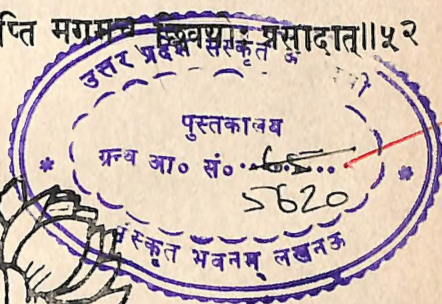 प्ति मगमच्च छिवयोः प्रसादात्॥५२
उत्तर प्रदेश संस्कृत
पुस्तकालय
ग्रन्थ आ० सं०
5620
संस्कृत भवनम् लखनऊ